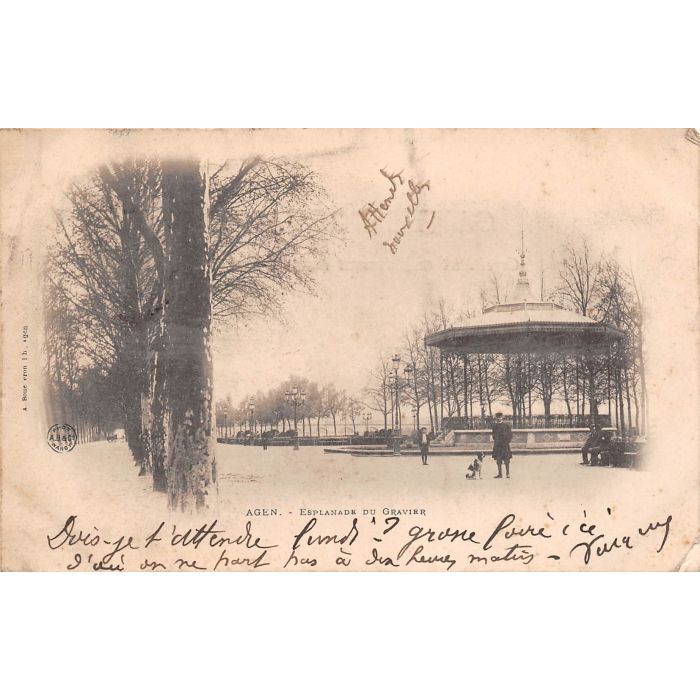 Attends
nouvelles
A. Bouc eron lib. agen
A.B.&C°
NANCY
AGEN. - ESPLANADE DU GRAVIER
Dois-je t'attendre lundi ? grosse foire ici
d'où on ne part pas à dix heures matin -